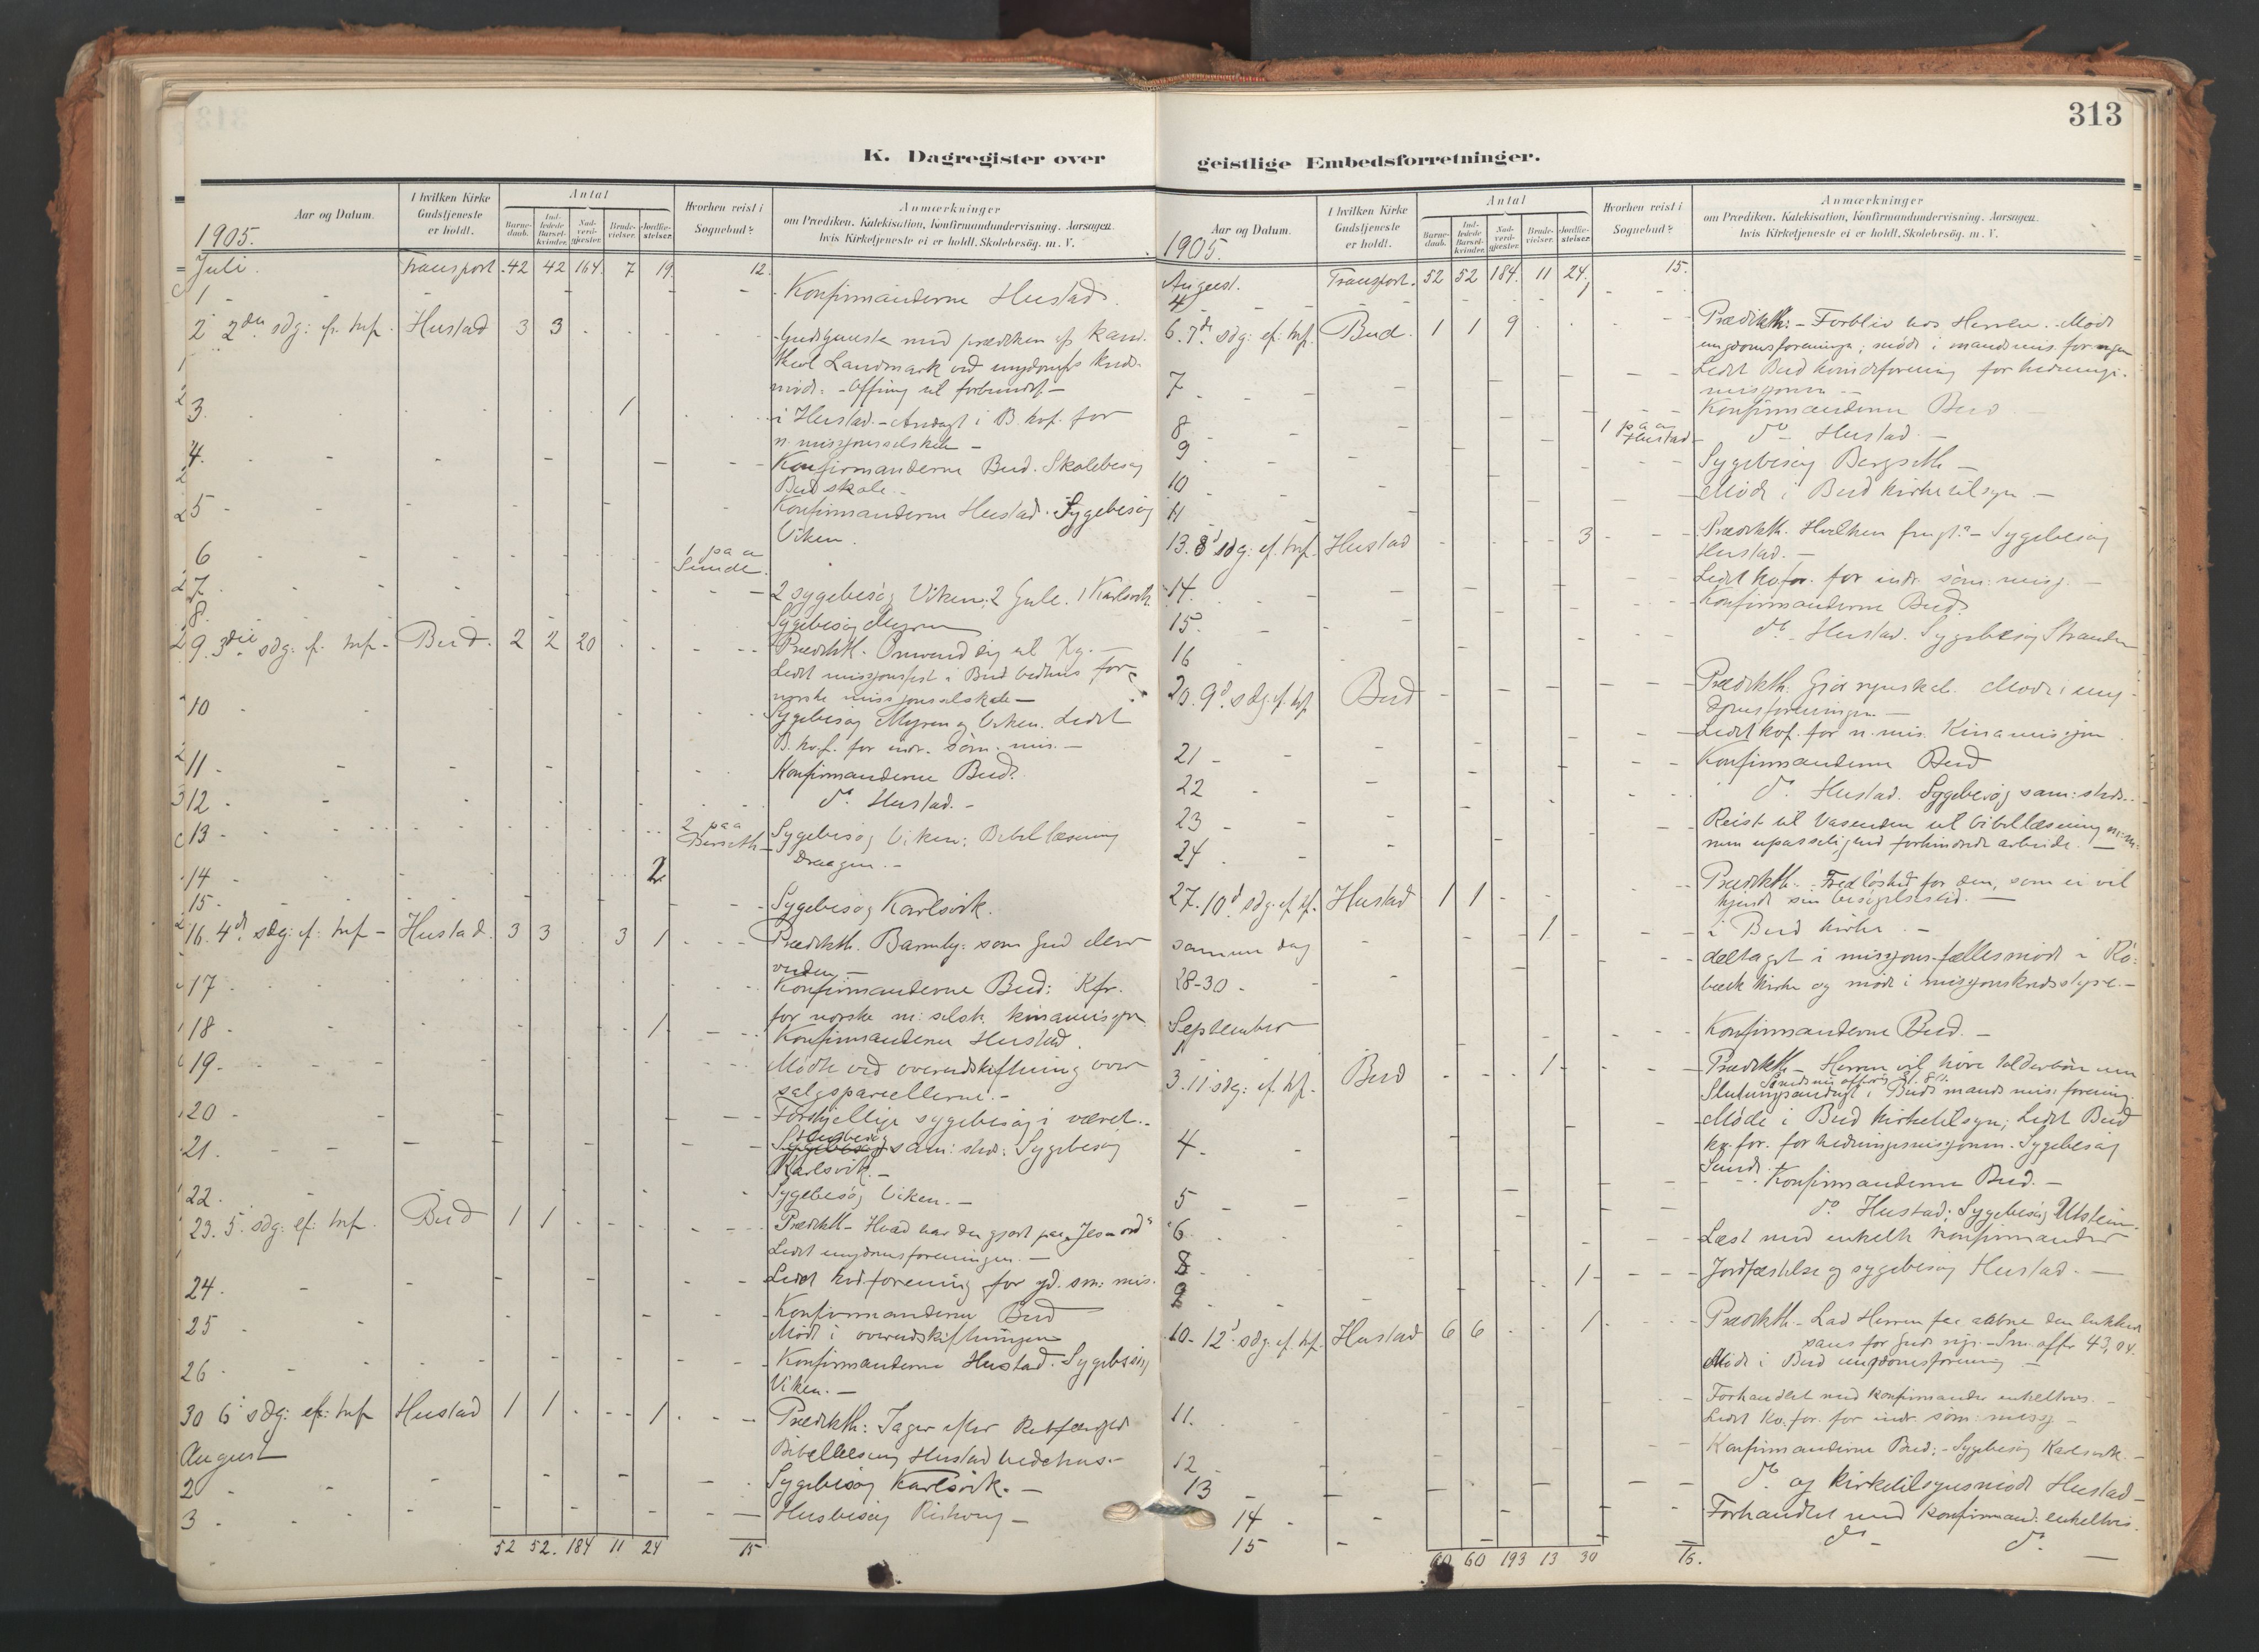 313
K. Dagregister over
geistlige Embedsforretninger.
Aar og Datum.
I hvilken Kirke Gudstjeneste er holdt.
Antal
Barnedaab.
Indledede Barselkvinder.
Nadverdgjester.
Brudevielser.
Jordfæstelser.
Hvorhen reist i Sognebud?
Anmærkninger
om Prædiken. Katekisation, Konfirmandundervisning. Aarsagen.
hvis Kirketjeneste ei er holdt. Skolebesøg. m. V.
1905.
Juli. Transport. 42 42 164. 7 19. 12.
1 - Konfirmanderne Hustad.
2 2den sdg: ef. trf. Hustad 3 3 Gudstjeneste med prædiken af kand.
Landmark ved ungdomsf.
møde. - Offring til forbundet -
3. 1 i Hustad. - Andagt i B. kvf. for
n. missjonsselskab -
4. Konfirmanderne Bud. Skolebesøg
Bud skole. -
5 - Konfirmanderne Hustad. Sygebesøg
Viken.
6 1 paa Sunde.
7. 2 sygebesøg Viken; 2 Gule. 1 Karlsvik.
8. Sygebesøg Myren
9. 3die sdg: ef. trf - Bud. 2 2 20 Prædkth. Omvend dig til
Ledet missjonsfest i Bud bedhus for
norske missjonsselskab -
10 Sygebesøg Myren og Viken. Ledet
B. kv.f. for indr. søm. mis. -
11 - Konfirmanderne Bud.
12 - do. Hustad. -
13 - 2 paa Sygebesøg Viken; Bibellæsning
Draagen. -
14 - 2
15 - Sygebesøg Karlsvik.
16. 4de sdg: ef. trf - Hustad. 3 3 3 1 Prædkth. Barmhj: som Gud eller
verden -
17 - Konfirmanderne Bud: Kfr.
for norske m: selsk. kinamisjon
18 - 1 Konfirmanderne Hustad.
19. Møde ved overudskiftning over
salgsparcellerne. -
20 - Forskjellige sygebesøg i været. -
21. - Husbesøg sam: sted: Sygebesøg
Karlsvik. -
22. Sygebesøg Viken. -
23. 5. sdg: ef: trf. Bud 1 1 Prædkth - Hvad har du gjort paa Jesu ord?
Ledet ungdomsforeningen. -
24. Ledet kvd.forening for jd. sm: mis.
25 Konfirmanderne Bud
Møde i overudskiftningen
26 - Konfirmanderne Hustad. Sygebesøg
Viken. -
30 6 sdg: ef: trf Hustad 1 1 1 Prædkth: Jager efter Retfærdighed
Bibellæsning Hustad bedehus. -
August
2 Sygebesøg Karlsvik. -
3 - Husbesøg -
52 52. 184 11 24 15
Aar og Datum.
I hvilken Kirke Gudstjeneste er holdt.
Antal
Barnedaab.
Indledede Barselkvinder.
Nadverdgjester.
Brudevielser.
Jordfæstelser.
Hvorhen reist i Sognebud?
Anmærkninger
om Prædiken. Katekisation, Konfirmandundervisning. Aarsagen.
hvis Kirketjeneste ei er holdt. Skolebesøg. m. V.
1905.
August. Transport. 52 52 184. 11 24. 15.
4 - 1
6. 7de sdg: ef: trf. Bud. 1 1 9 Prædikth: - Forbliv hos Herren. Møde
ungdomsforeningen; møde i mandsmis.foreningen
7 - Ledet Bud kvindeforening for hedninge-
missjonen -
8 - Konfirmanderne Bud -
9 1 paa Hustad do Hustad. -
10 Sygebesøg Bergseth -
11 Møde i Bud kirketilsyn -
13. 8d sdg: ef. trf. Hustad 3 Prædkth. Hvilken frugt? - Sygebesøg
Hustad. -
14. Ledet kvfor. for indr. søm: misj. -
15 Konfirmanderne Bud.
16 do - Hustad. Sygebesøg Stranden
20. 9d. sdg. ef. trf Bud Prædkth: Gjør regnskab. Møde i ung-
domsforeningen -
21 - Ledet kvf. for n. mis. Kinamissjon
22 Konfirmanderne Bud
23 - do. Hustad. Sygebesøg sam: steds.
24 - Reist til Vasenden til bibellæsning m: m:
men upasselighed forhindrede arbeide. -
27. 10d sdg: ef. trf. Hustad 1 1 Prædkth. - Fredløshed for den, som ei vil
kjende sin besøgelsestid. -
samme dag 1 i Bud kirke. -
28-30 - deltaget i missjons-fællesmøde i Rø-
bæk kirke og møde i missjonskredsstyre. -
September
1 Konfirmanderne Bud. -
3. 11 sdg: ef. trf. Bud 1 Prædkth - Herren vil høre
Slutningsandagt i Buds mands mis: forening.
4 - Møde i Bud kirketilsyn; Ledet Bud
kv. for. for hedningemissjonen. Sygebesøg
Sunde. -
5 - Konfirmanderne Bud. -
6 do Hustad; Sygebesøg Utstein.
8 - Læst med enkelte konfirmander
9 1 Jordfæstelse og sygebesøg Hustad. -
10 - 12d sdg. ef. trf. Hustad 6 6 1 Prædkth. - Lad Herren faa aabne den lukkede
sans for Guds rige. - Sm: offer 43,04.
Møde i Bud ungdomsforening -
11. Forhandlet med konfirmander enkeltvis. -
Ledet kv. for. for indr. søm: missj. -
12 Konfirmanderne Bud; - Sygebesøg Karlsvik. -
13 do og kirketilsynsmøde Hustad -
14 Forhandlet med konfirmand: enkeltvis.
15 do - do -
60 60 193 13 30 16.